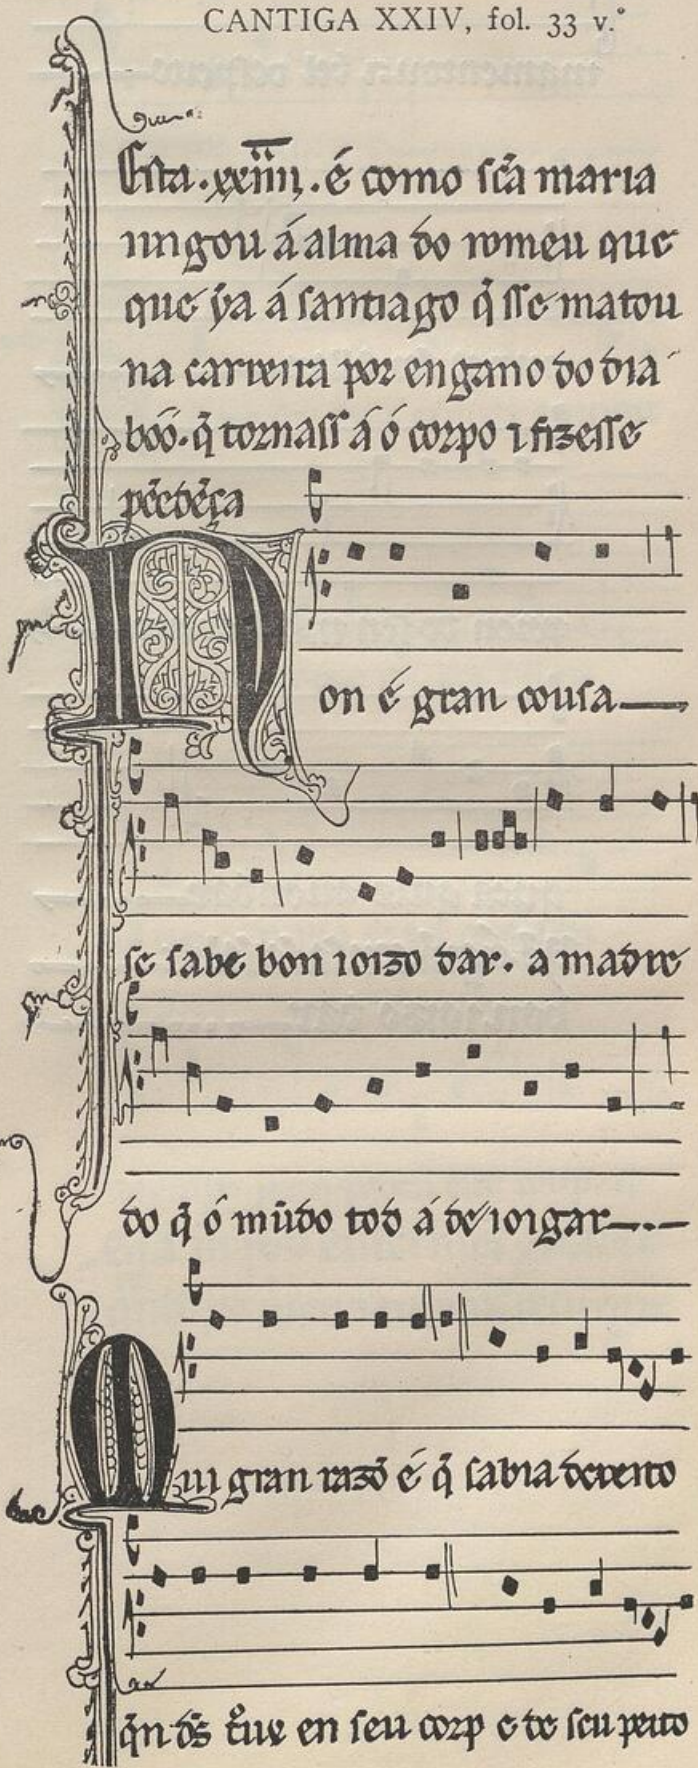 CANTIGA XXIV, fol. 33 v.°
Esta .xxiiii. é como sc̃a maria
iuigou á alma do romeu que
que ẏa á santiago q̃ sse matou
na carreira por engano do dia
boo. q̃ tornass á ó corpo ⁊ fizesse
pẽedẽça
Non é gran cousa
se sabe bon ioizo dar. a madre
do q̃ ó mũdo tod á de ioigar
Mui gran razõ é q̃ sabia dereito
q̃n d̃s tẽue en seu corp e de seu peito